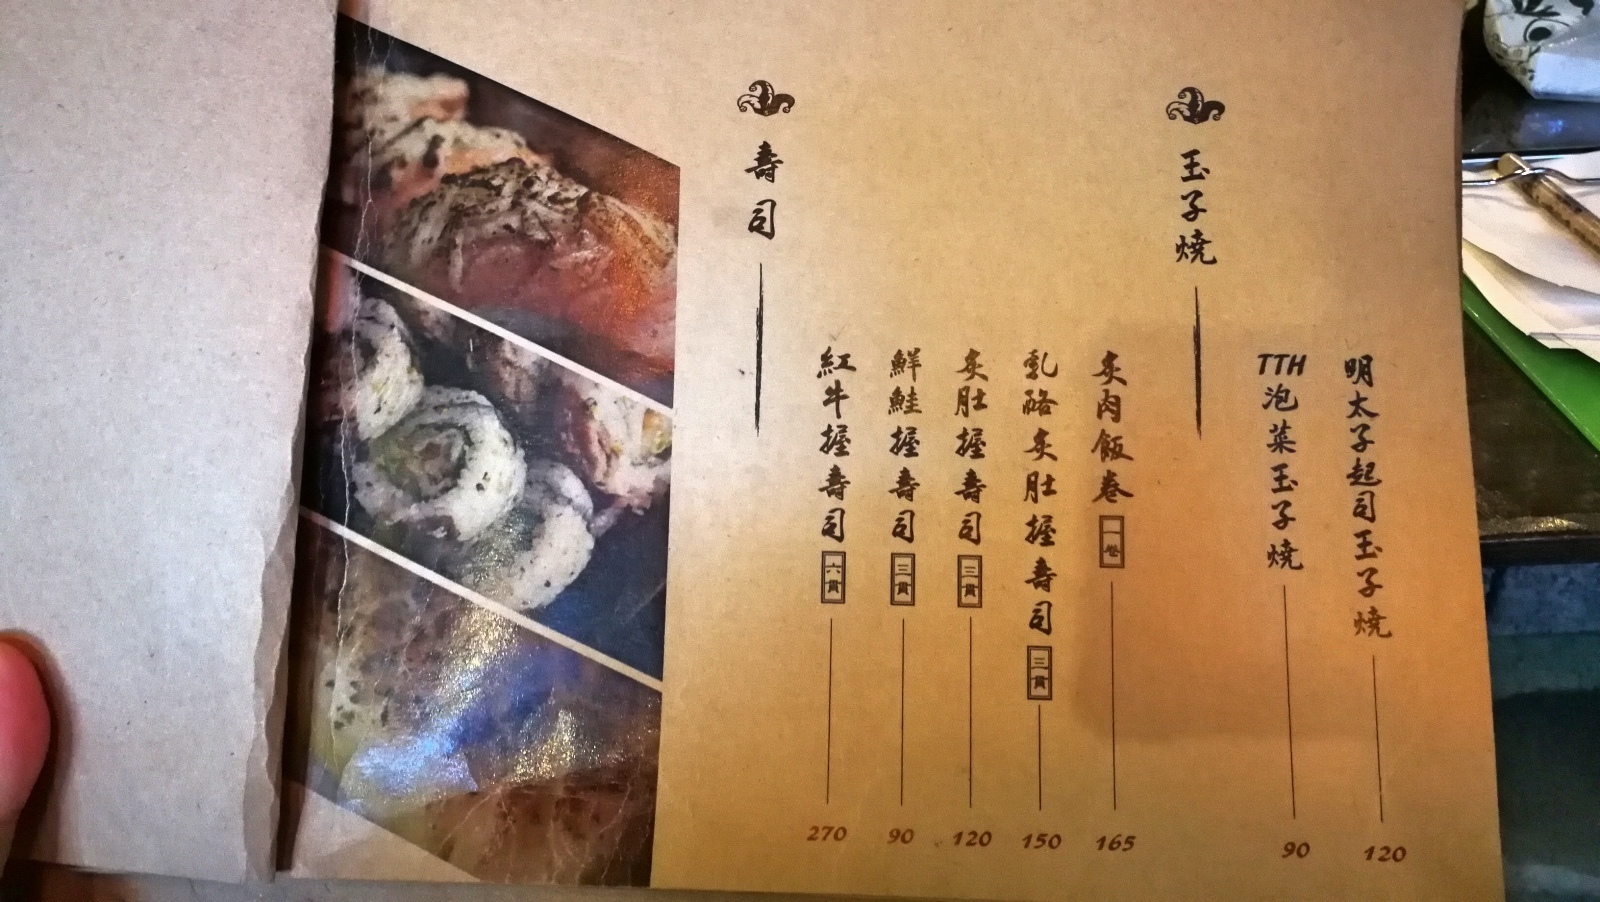 玉子燒
明太子起司玉子燒 120
TTH泡菜玉子燒 90
壽司
炙肉飯卷 一卷 165
乳酪炙肚握壽司 三貫 150
炙肚握壽司 三貫 120
鮮鮭握壽司 三貫 90
紅牛握壽司 六貫 270